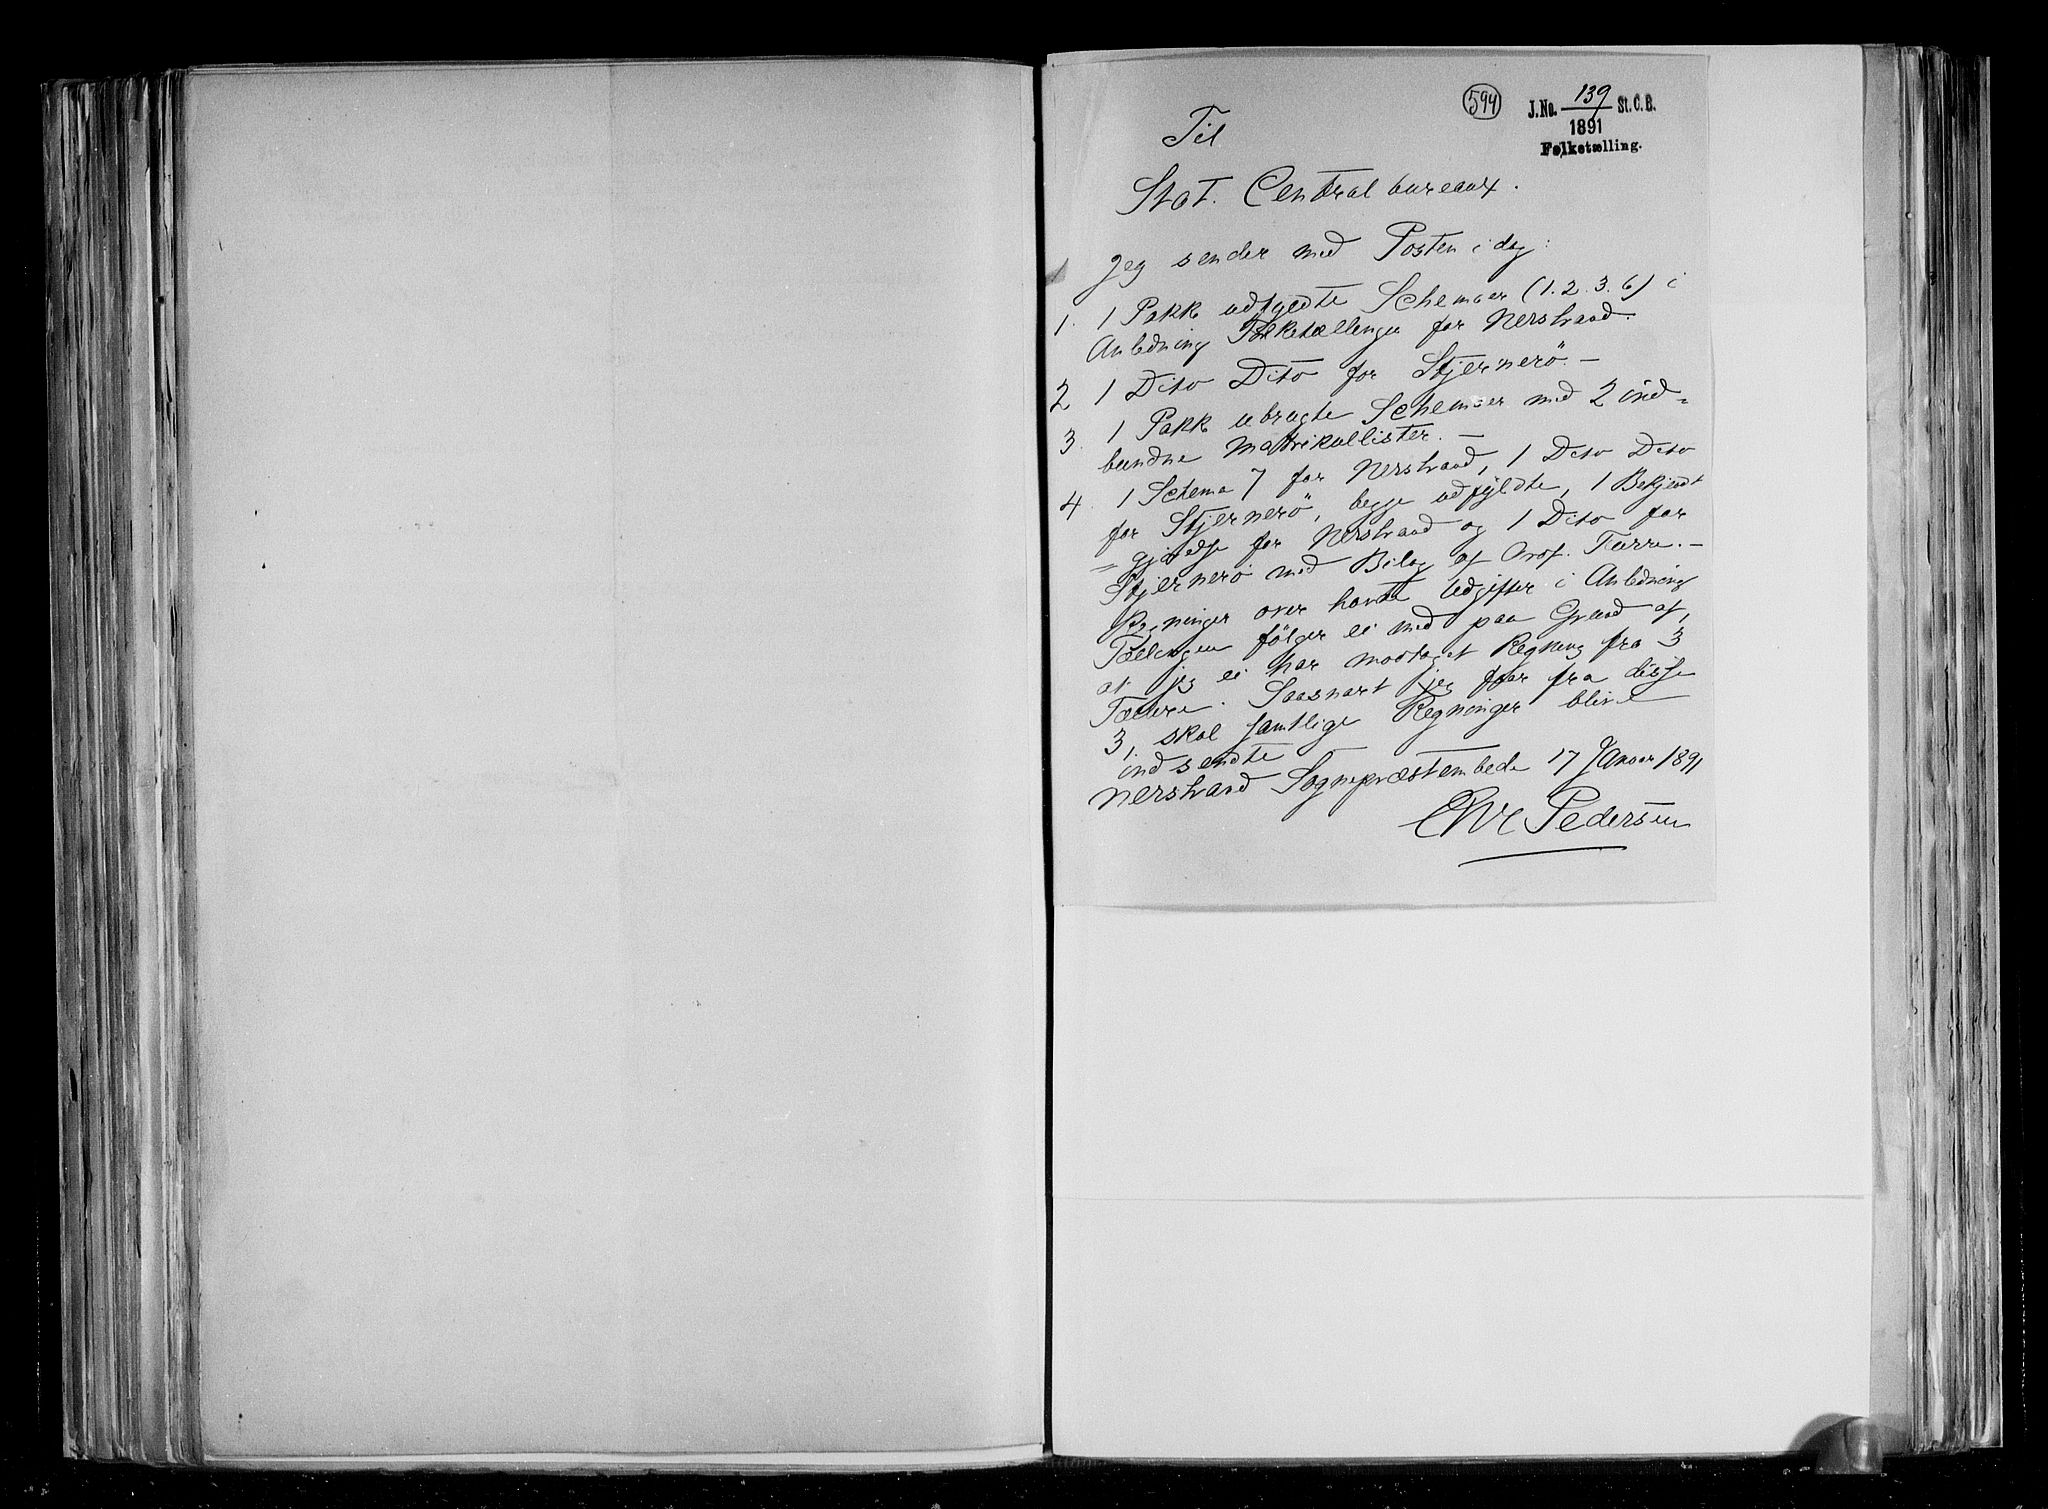 594
J.No. 139 St. C. B.
1891
Folketælling.
Til
Stat. Centralbureaux.
Jeg sender med Posten i dag:
1. 1 Pakke udfyldte Schemaer (1. 2. 3. 6) i
Anledning Folketællingen for Nerstrand.
2 1 Dito Dito for Stjernerö. —
3. 1 Pakke ubrugte Schemaer med 2 ind=
bundne Matrikullister. —
4. 1 Schema 7 for Nerstrand, 1 Dito Dito
for Stjernerö, begge udfyldte, 1 Bekjendt
= gjørelse for Nerstrand og 1 Dito for
Stjernerö med Bilag af Prof. —
Regninger over havte Udgifter i Anledning
Tællingen fölger ei med paa Grund af,
at jeg ei har modtaget Regning fra 3
Tællere. Saasnart jeg faar fra disse
3, skal samtlige Regninger blive
indsendte
Nerstrand Sognepræstembede 17 Januar 1891
Pedersen